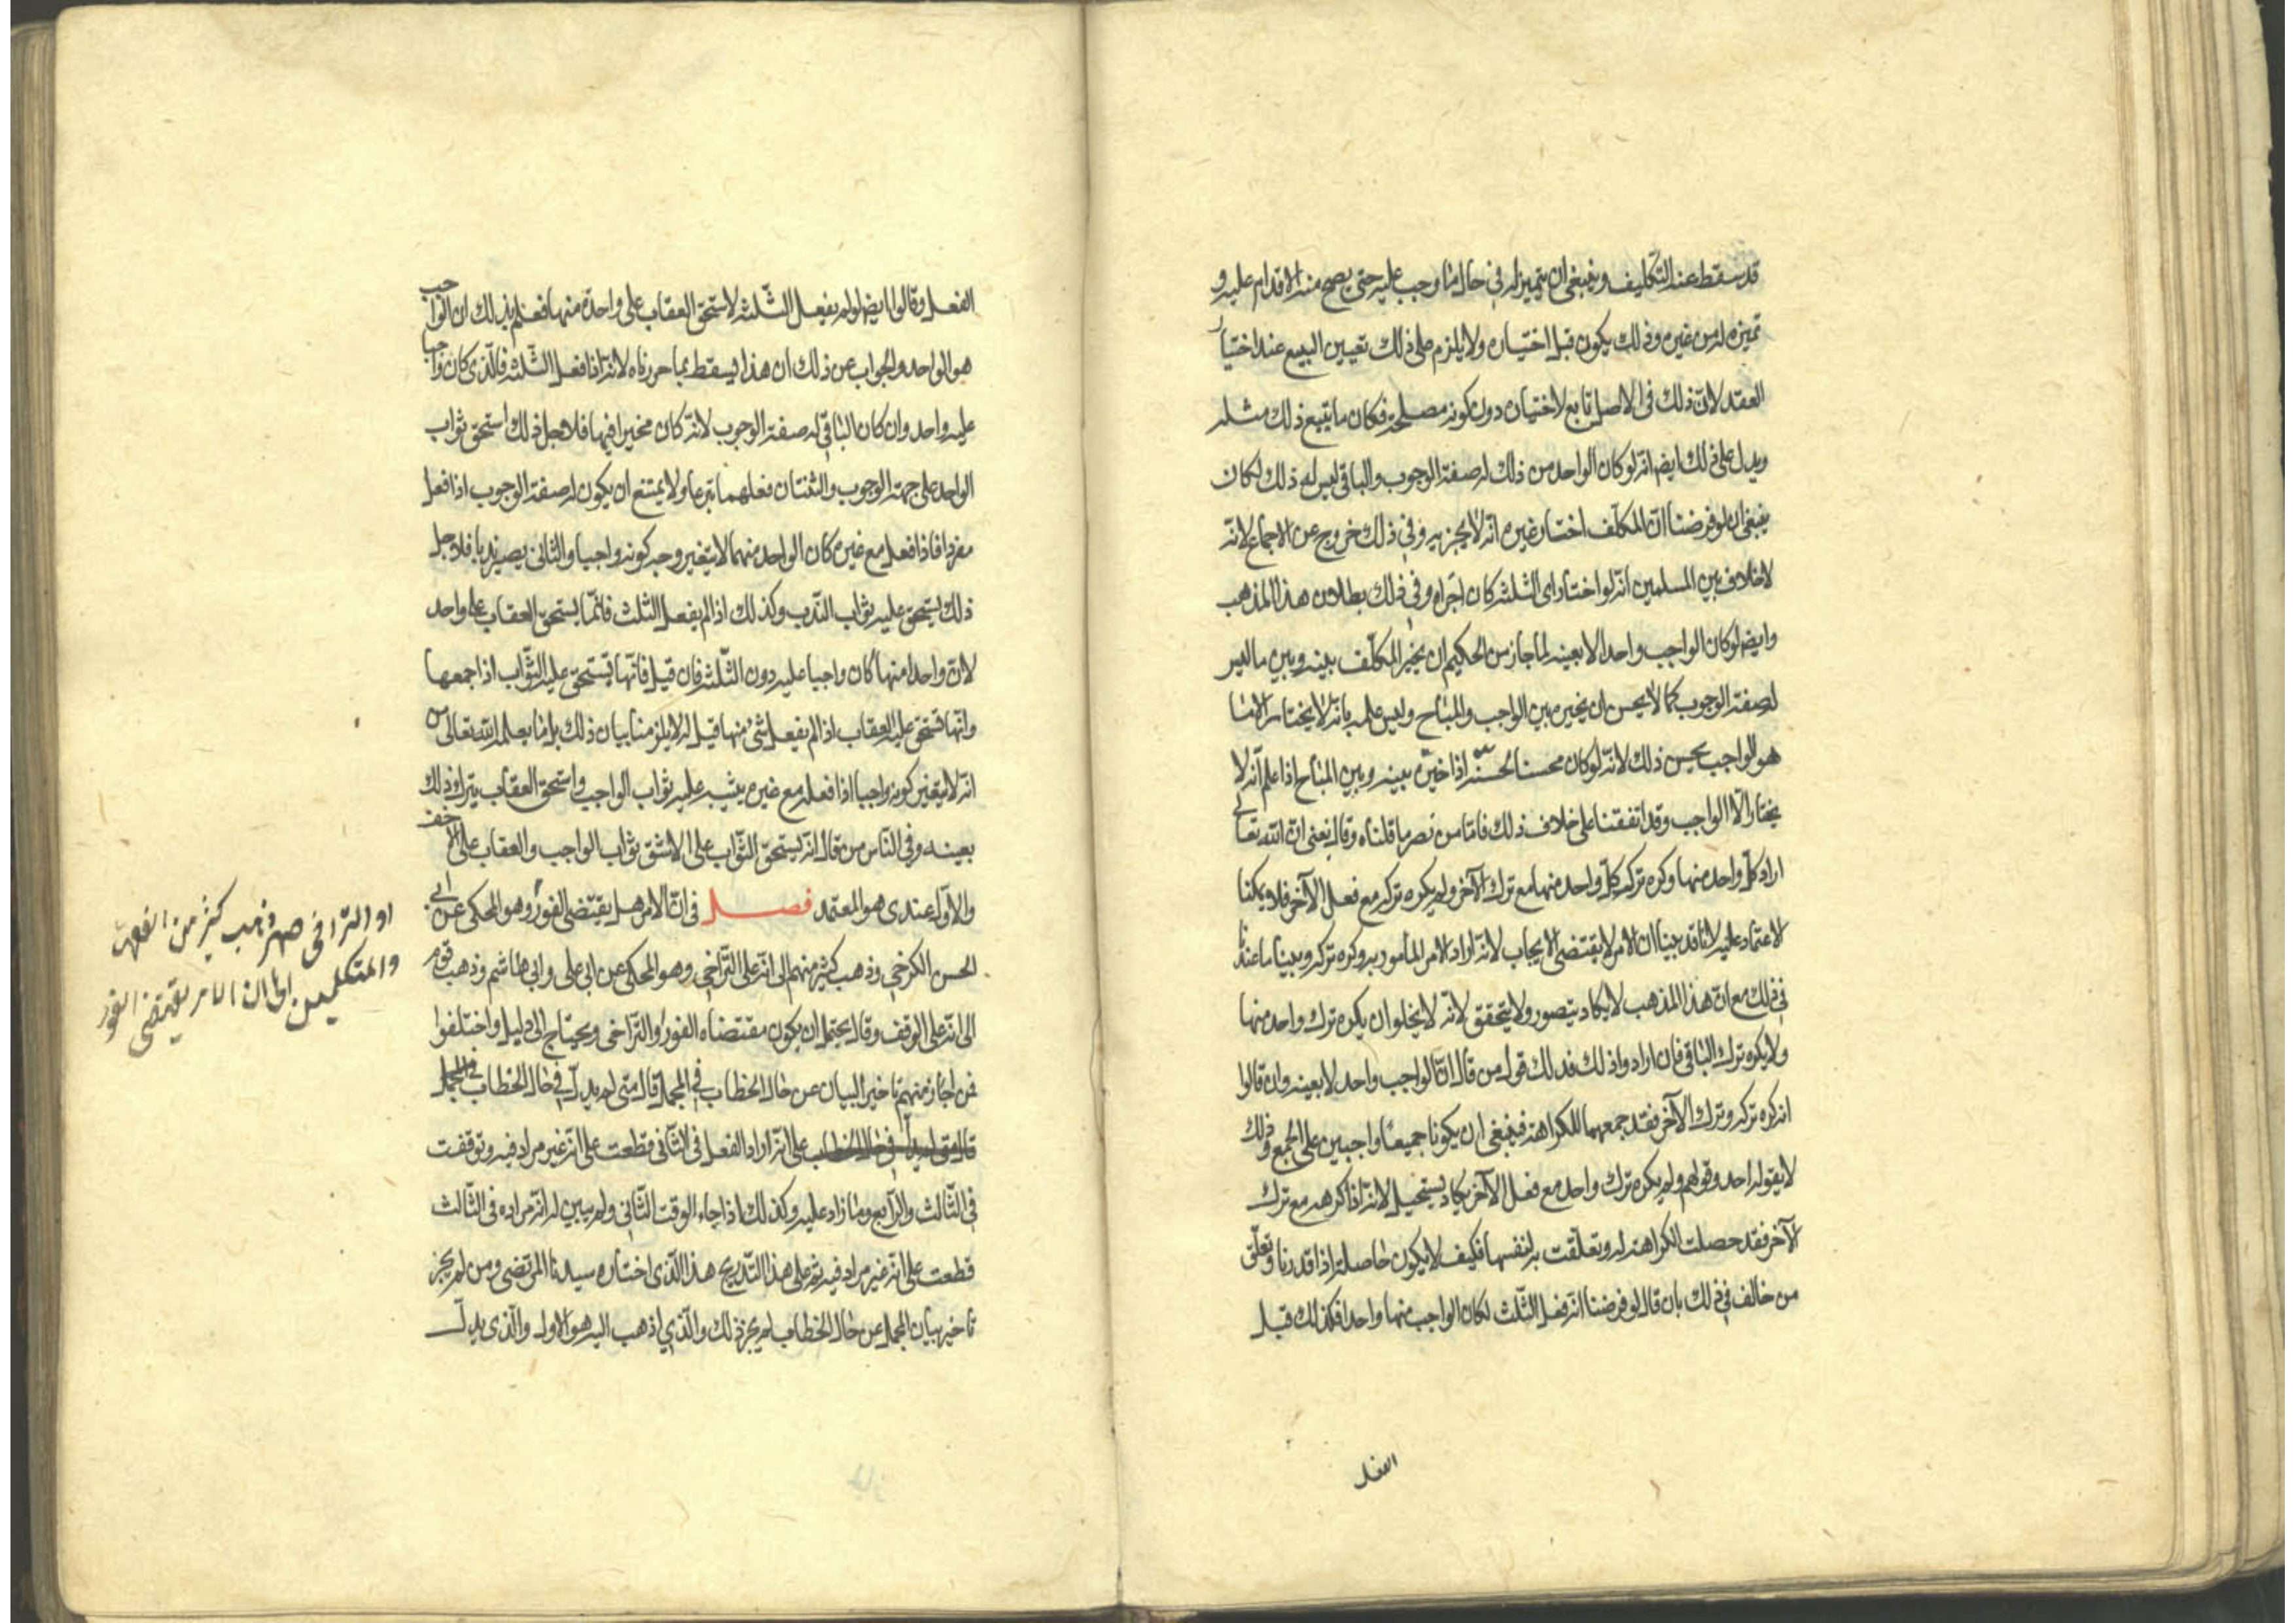 قد سقط عند التكليف وينبغي ان يتميز له في حال ما وجب عليه حتى يصح منه الاقدام عليه و
تميزه له من غيره وذلك يكون قبل اختياره ولا يلزم على ذلك تعيين البيع عند اختيار
العقد لان ذلك في الاصل تابع لاختياره دون كونه مصلحة فكان ما يتبع ذلك مثله
ويدل على ذلك ايضا انه لو كان الواحد من ذلك له صفة الوجوب والباقي ليس له ذلك لكان
ينبغي ان لو فرضنا ان المكلف اختار غيره انه لا يجزيه وفي ذلك خروج عن الاجماع لانه
لا خلاف بين المسلمين انه لو اختار اي الثلثة كان اجزاه وفي ذلك بطلان هذا المذهب
وايضا لو كان الواجب واحدا لا بعينه لما جاز من الحكيم ان يخير المكلف بينه وبين ما ليس
له صفة الوجوب كما لا يحسن ان يخير بين الواجب والمباح وليس علمه بانه لا يختار الا ما
هو الواجب يحسن ذلك لانه لو كان محسنا لحسنه اذا خيره بينه وبين المباح اذا علم انه لا
يختار الا الواجب وقد اتفقنا على خلاف ذلك فاما من نصر ما قلناه وقال يعني ان الله تعالى
اراد كل واحد منها وكره ترك كل واحد منها مع ترك الآخر ولم يكره تركه مع فعل الآخر فلا يمكننا
الاعتماد عليه لانا قد بينا ان الامر لا يقتضي الايجاب لانه اراد الامر المأمور به وكره تركه وبينا ما عندنا
في ذلك مع ان هذا المذهب لا يكاد يتصور ولا يتحقق لانه لا يخلو ان يكره ترك واحد منها
ولا يكره ترك الباقي فان ارادوا ذلك فذلك قول من قال ان الواجب واحد لا بعينه وان قالوا
انه كره تركه وترك الآخر فقد جمعهما للكراهة فينبغي ان يكونا جميعا واجبين على الجمع وذلك
لا يقوله احد وقولهم ولم يكره ترك واحد مع فعل الآخر يكاد يستحيل لانه اذا كرهه مع ترك
الآخر فقد حصلت الكراهة له وتعلقت به لنفسها فكيف لا يكون حاصلة اذا قدرنا وتعلق
من خالف في ذلك بان قال لو فرضنا انه فعل الثلث لكان الواجب منها واحدا فكذلك قبل
الفعل
الفعل وقالوا ايضا لو لم يفعل الثلثة لاستحق العقاب على واحدة منها فعلم بذلك ان الواجب
هو الواحد والجواب عن ذلك ان هذا يسقط بما حررناه لانه اذا فعل الثلثة فالذي كان واجبا
عليه واحد وان كان الباقي له صفة الوجوب لانه كان مخيرا فيها فلاجل ذلك استحق ثواب
الواحد على جهة الوجوب والثنتان فعلهما تبرعا ولا يمتنع ان يكون له صفة الوجوب اذا فعل
مفردا فاذا فعل مع غيره كان الواحد منهما لا يتغير وجه كونه واجبا والثاني يصير ندبا فلاجل
ذلك يستحق عليه ثواب الندب وكذلك اذا لم يفعل الثلث فانما يستحق العقاب على واحد
لان واحدا منها كان واجبا عليه دون الثلثة فان قيل فايها يستحق عليه الثواب اذا جمعها
وايها يستحق عليه العقاب اذا لم يفعل شئ منها قيل له لا يلزمنا بيان ذلك بل ما يعلم الله تعالى من
انه لا يتغير كونه واجبا اذا فعله مع غيره يثيبه عليه ثواب الواجب واستحق العقاب بترك ذلك
بعينه وفي الناس من قال انه يستحق الثواب على الاشق ثواب الواجب والعقاب على الاخف
والاول عندي هو المعتمد فصل في ان الامر هل يقتضي الفور وهو المحكي عن ابي
الحسن الكرخي وذهب كثير منهم الى انه على التراخي وهو المحكي عن ابي علي وابي هاشم وذهب قوم
الى انه على الوقف وقال يحتمل ان يكون مقتضاه الفور والتراخي ويحتاج الى دليل واختلفوا
فمن اجاز منهم تاخير البيان عن حال الخطاب في المجمل قال متى لم يدل في حال الخطاب في المجمل
قال متى لم يدل في حال الخطاب على انه اراد الفعل في الثاني قطعت على انه غير مراد فيه وتوقفت
في الثالث والرابع وما زاد عليه وكذلك اذا جاء الوقت الثاني ولم يبين له انه مراده في الثالث
قطعت على انه غير مراد فيه ثم على هذا التدريج هذا الذي اختاره سيدنا المرتضى ومن لم يجز
تاخير بيان المجمل عن حال الخطاب لم يجز ذلك والذي اذهب اليه هو الاول والذي يدل
او التراخي ... ذهب كثير من الفقهاء
والمتكلمين الى ان الامر يقتضي الفور